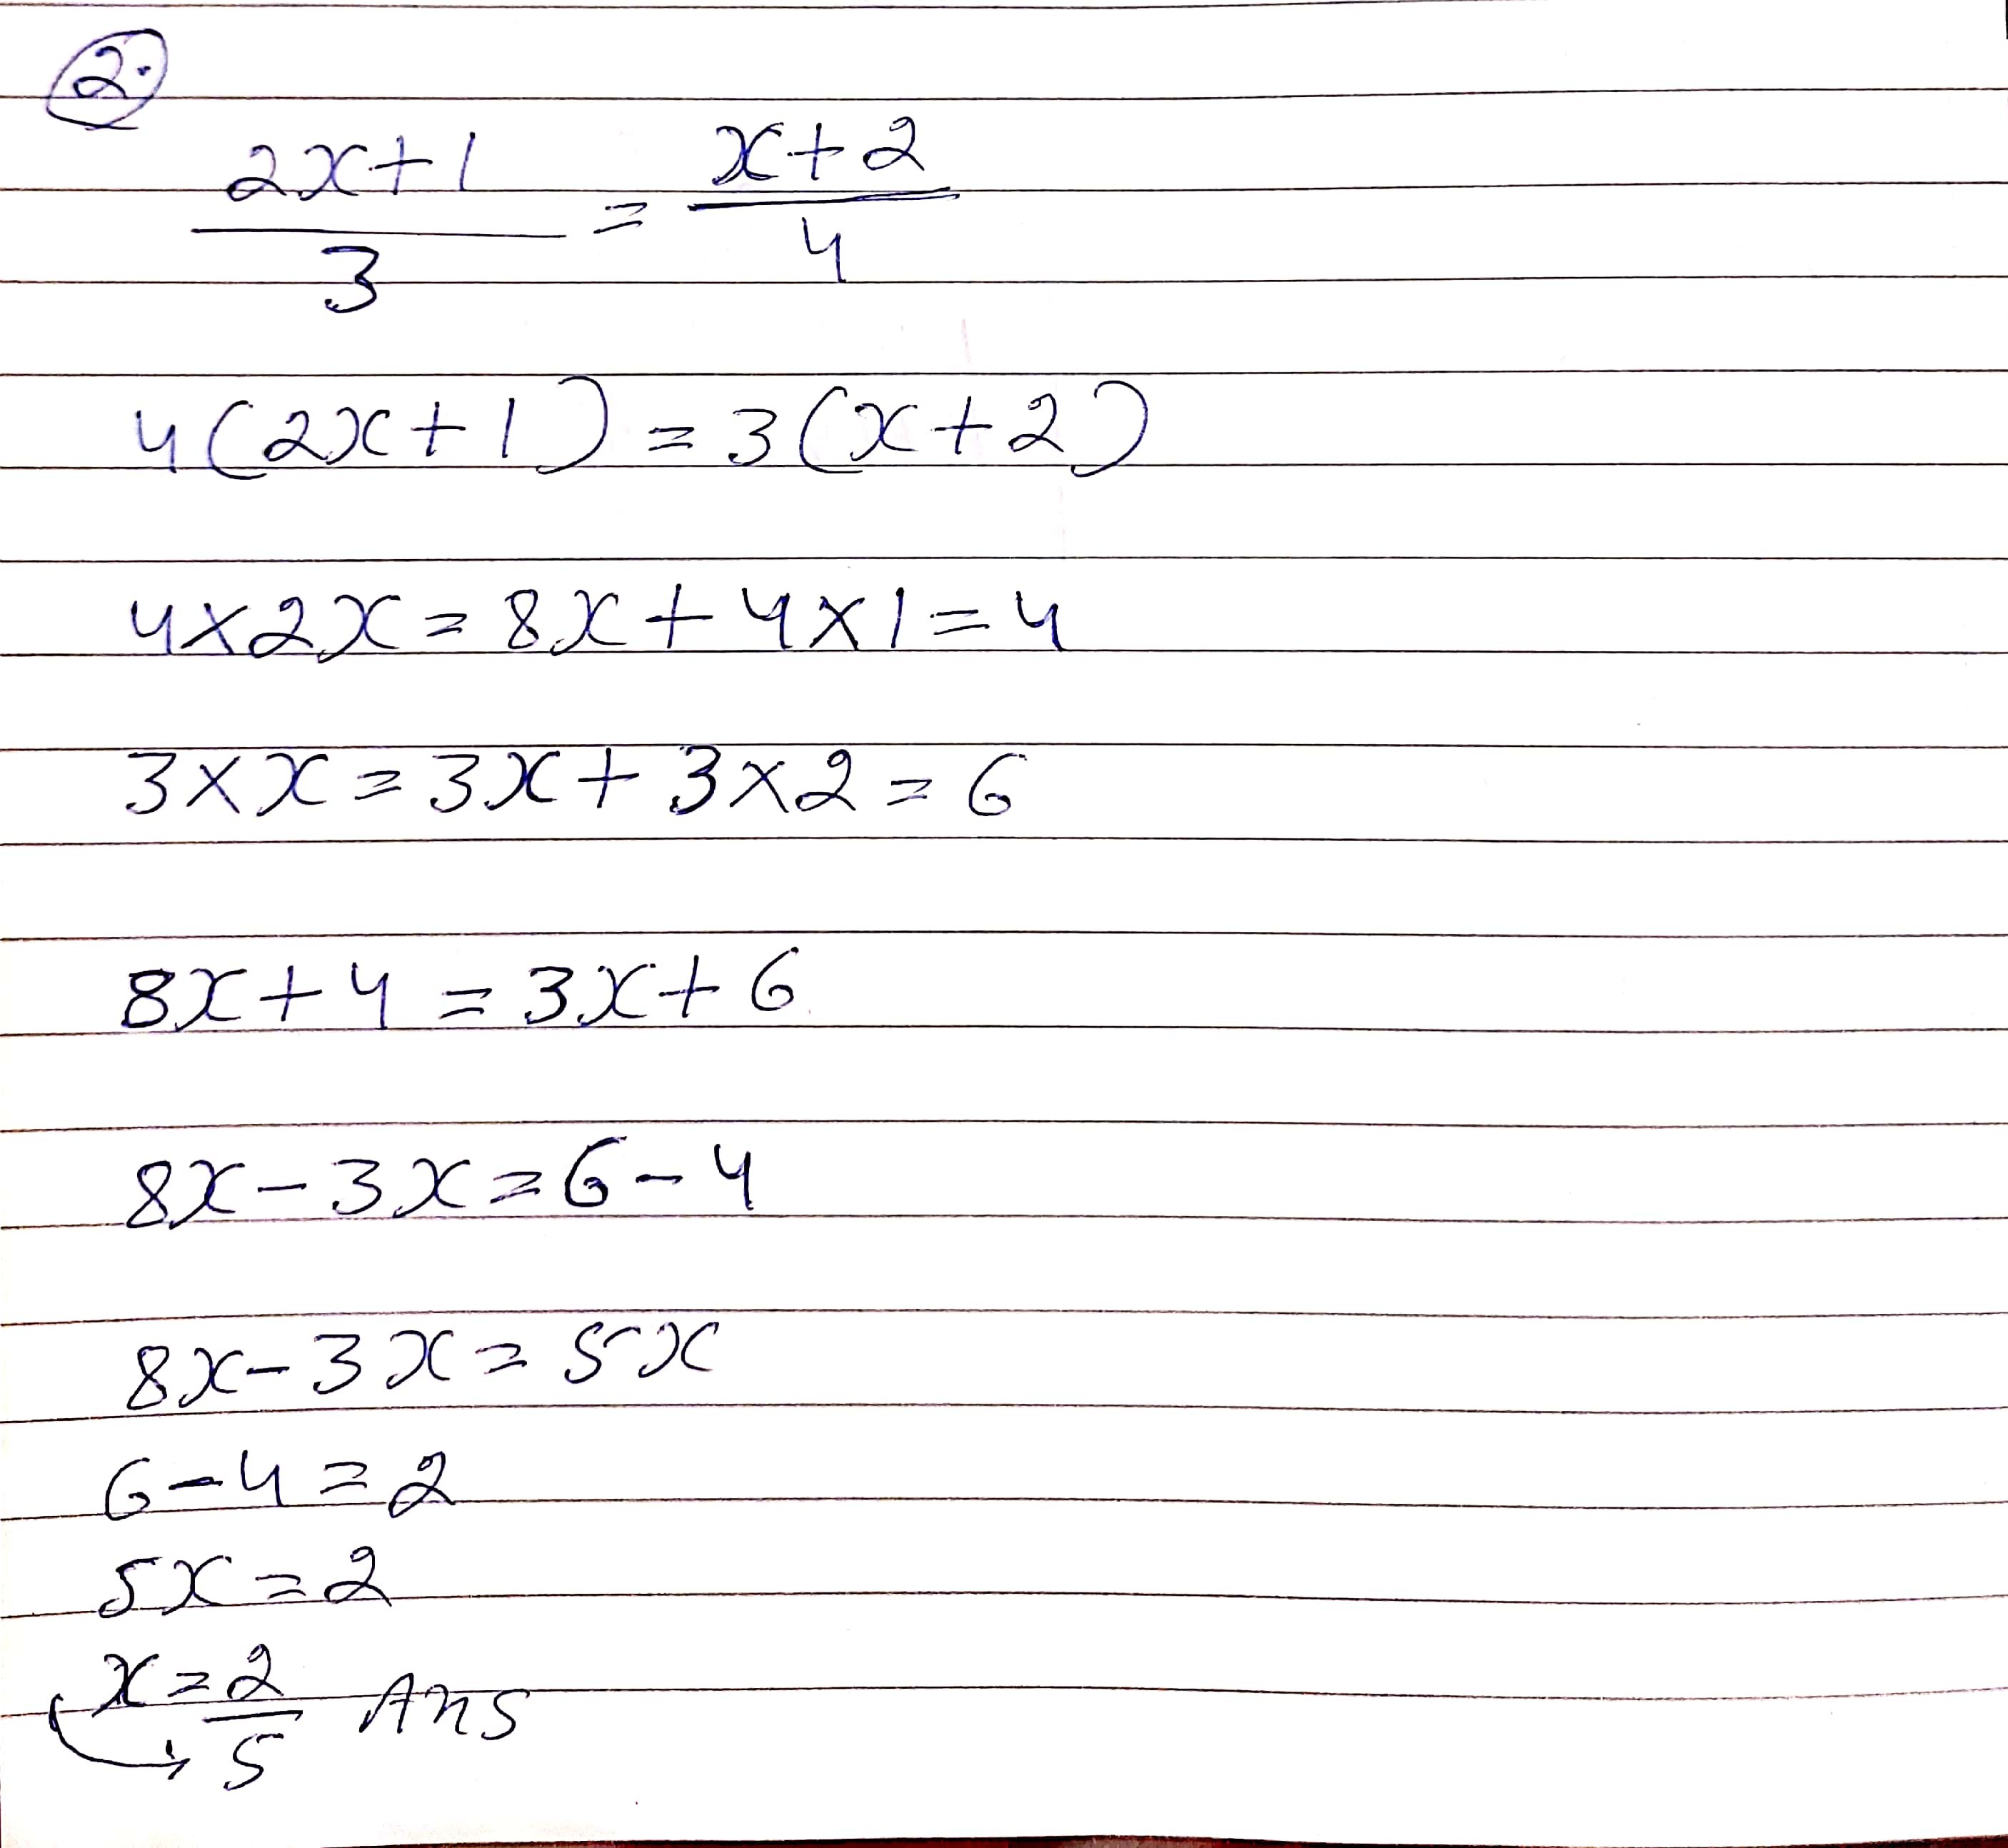 2.
2x+1/3 = x+2/4
4(2x+1) = 3(x+2)
4×2x=8x+4×1=4
3×x=3x+3×2=6
8x+4=3x+6
8x-3x=6-4
8x-3x=5x
6-4=2
5x=2
x=2/5 Ans